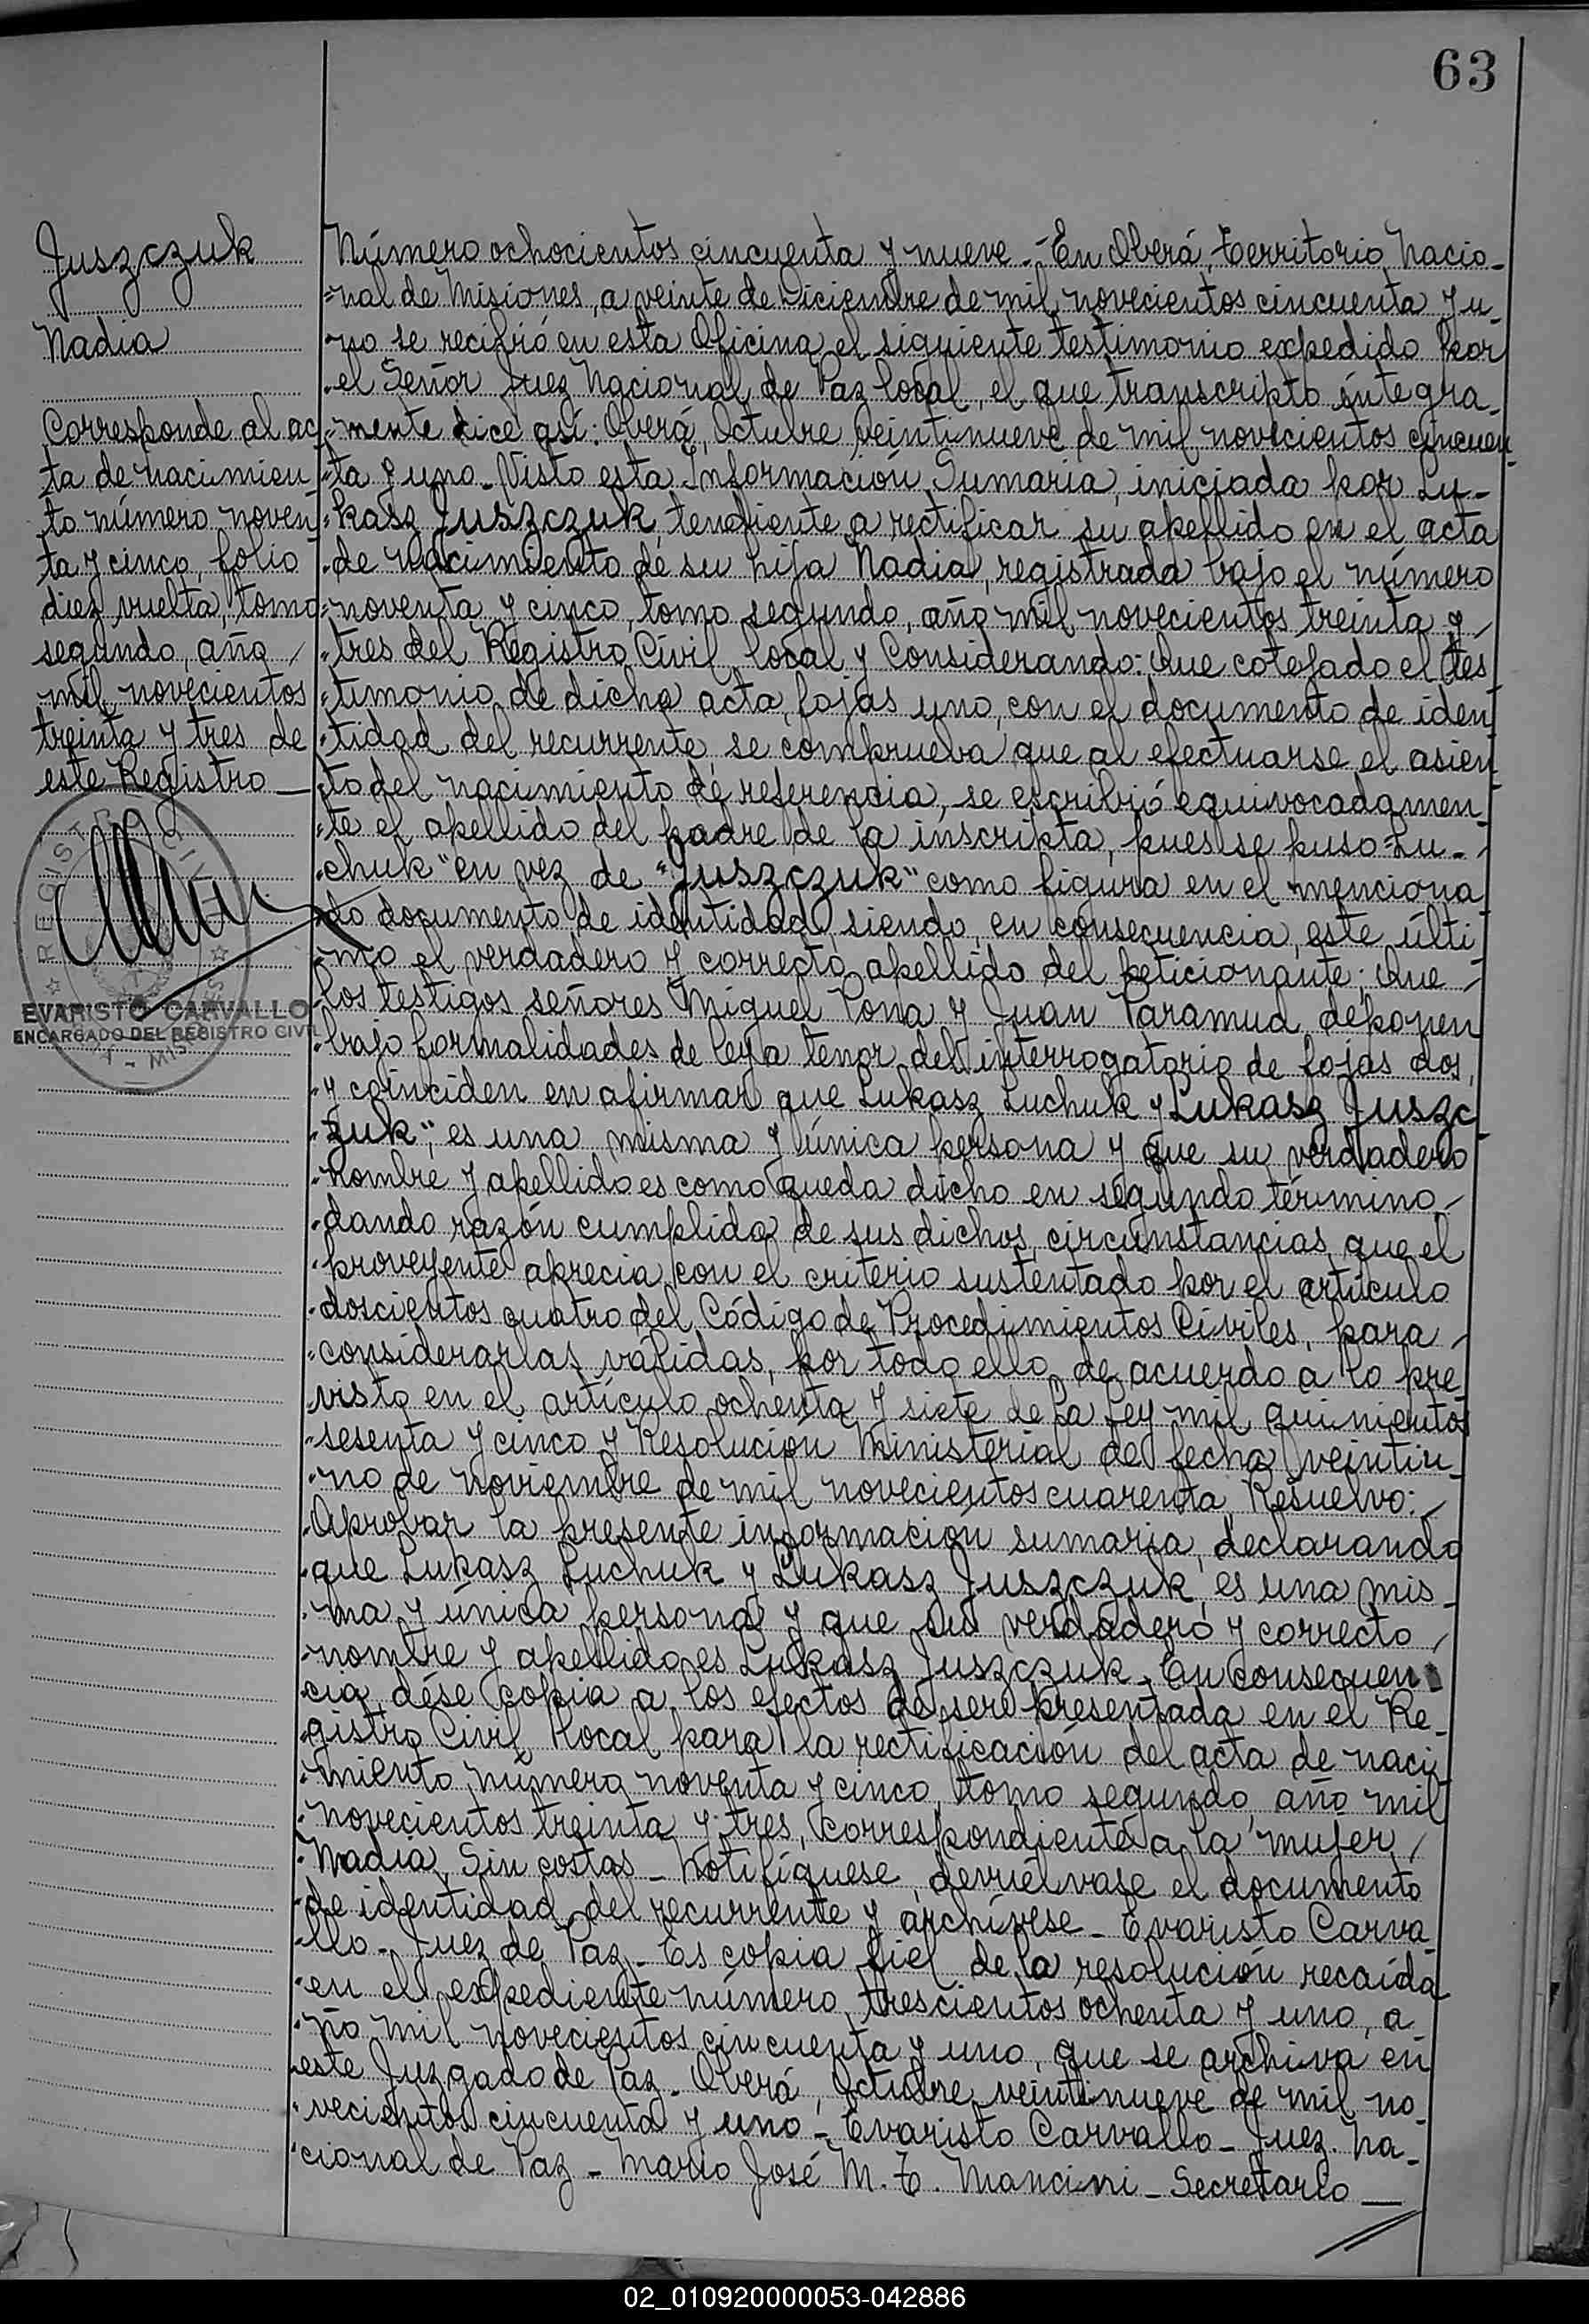 63
Juszczuk
Nadia
Corresponde al ac-
ta de nacimien-
to número noven-
ta y cinco, folio
diez vuelta, tomo
segundo, año
mil novecientos
treinta y tres de
este Registro
REGISTRO CIVIL
EVARISTO CARVALLO
ENCARGADO DEL REGISTRO CIVIL
Número ochocientos cincuenta y nueve - En Oberá, Territorio Nacio-
nal de Misiones, a veinte de Diciembre de mil novecientos cincuenta y u-
no se recibió en esta Oficina el siguiente testimonio expedido por
el Señor Juez Nacional de Paz local, el que transcripto íntegra-
mente dice así: Oberá, Octubre veintinueve de mil novecientos cincuen-
ta y uno - Visto esta Información Sumaria, iniciada por Lu-
kasz Juszczuk tendiente a rectificar su apellido en el acta
de nacimiento de su hija Nadia, registrada bajo el número
noventa y cinco, tomo segundo, año mil novecientos treinta y
tres del Registro Civil local y Considerando: Que cotejado el tes-
timonio de dicha acta, fojas uno, con el documento de iden-
tidad del recurrente, se comprueba que al efectuarse el asien-
to del nacimiento de referencia, se escribió equivocadamen-
te el apellido del padre de la inscripta, pues se puso "Lu-
chuk" en vez de "Juszczuk" como figura en el menciona-
do documento de identidad, siendo, en consecuencia, este últi-
mo el verdadero y correcto apellido del peticionante; Que
los testigos señores Miguel Pona y Juan Paramud, deponen
bajo formalidades de ley a tenor del interrogatorio de fojas dos,
y coinciden en afirmar que Lukasz Luchuk y Lukasz Juszc-
zuk", es una misma y única persona y que su verdadero
nombre y apellido es como queda dicho en segundo término,
dando razón cumplida de sus dichos, circunstancias que el
proveyente aprecia con el criterio sustentado por el artículo
doscientos cuatro del Código de Procedimientos Civiles, para
considerarlas válidas, por todo ello, de acuerdo a lo pre-
visto en el artículo ochenta y siete de la Ley mil quinientos
sesenta y cinco y Resolución Ministerial de fecha veintiu-
no de noviembre de mil novecientos cuarenta, Resuelvo:
Aprobar la presente información sumaria, declarando
que Lukasz Luchuk y Lukasz Juszczuk, es una mis-
ma y única persona y que su verdadero y correcto
nombre y apellido es Lukasz Juszczuk. En consecuen-
cia, dése copia a los efectos de ser presentada en el Re-
gistro Civil local para la rectificación del acta de naci-
miento número noventa y cinco, tomo segundo, año mil
novecientos treinta y tres, correspondiente a la mujer
Nadia. Sin costas - Notifíquese, devuélvase el documento
de identidad del recurrente y archívese - Evaristo Carva-
llo - Juez de Paz - Es copia fiel de la resolución recaída
en el expediente número, trescientos ochenta y uno, a-
ño mil novecientos cincuenta y uno, que se archiva en
este Juzgado de Paz - Oberá, Octubre veintinueve de mil no-
vecientos cincuenta y uno - Evaristo Carvallo - Juez Na-
cional de Paz - Mario José M. T. Mancini - Secretario
02_010920000053-042886